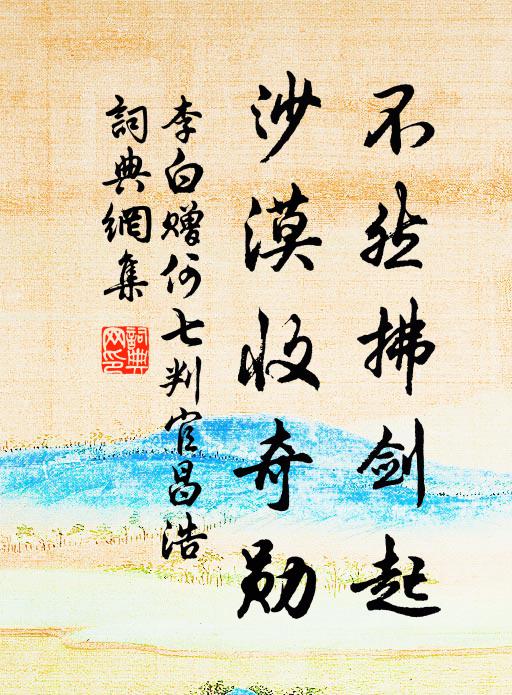 不然拂剑起
沙漠收奇勋
李白赠何七判官昌浩
詞典網集
詞典網印